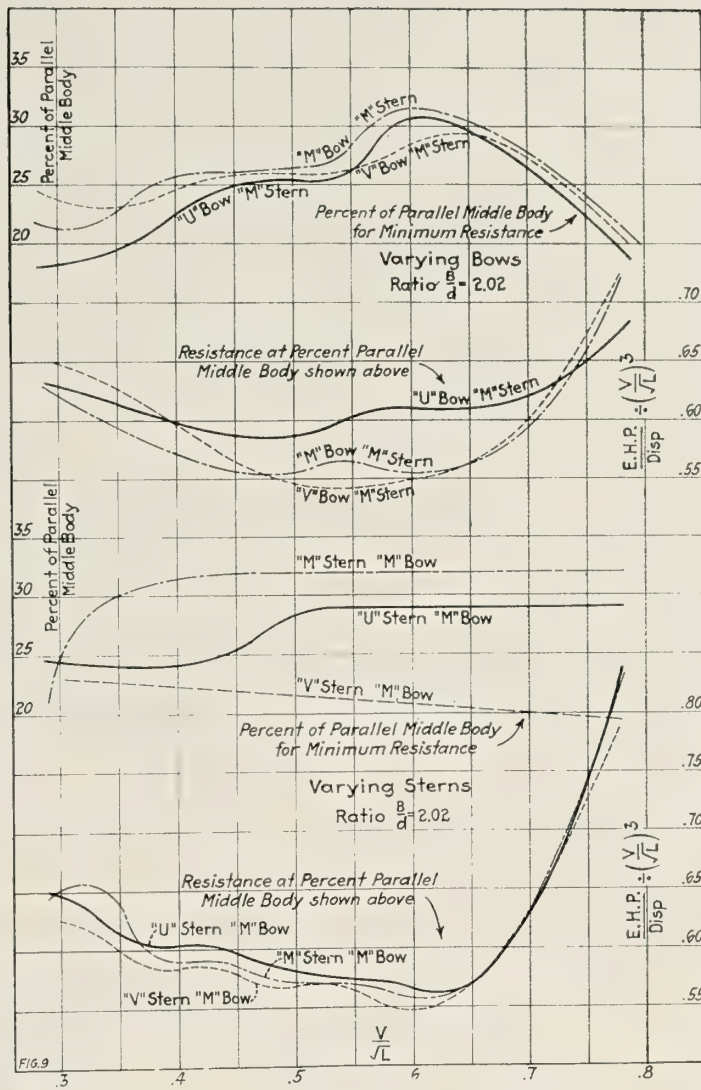 35
30
25
20
Percent of Parallel
Middle Body
"M" Bow "M" Stern
"U" Bow "M" Stern
"V" Bow "M" Stern
Percent of Parallel Middle Body
for Minimum Resistance
Varying Bows
Ratio B/d = 2.02
.70
.65
.60
.55
E.H.P./Disp ÷ (V/√L)³
Resistance at Percent Parallel
Middle Body shown above
"U" Bow "M" Stern
"M" Bow "M" Stern
"V" Bow "M" Stern
35
30
25
20
Percent of Parallel
Middle Body
"M" Stern "M" Bow
"U" Stern "M" Bow
"V" Stern "M" Bow
Percent of Parallel Middle Body
for Minimum Resistance
Varying Sterns
Ratio B/d = 2.02
.80
.75
.70
.65
.60
.55
E.H.P./Disp ÷ (V/√L)³
Resistance at Percent Parallel
Middle Body shown above
"U" Stern "M" Bow
"M" Stern "M" Bow
"V" Stern "M" Bow
FIG.9
.3 .4 .5 V/√L .6 .7 .8